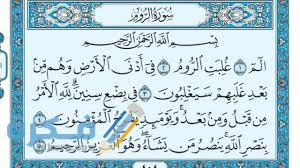 سُورَةُ الرُّومِ
بِسْمِ اللَّهِ الرَّحْمَٰنِ الرَّحِيمِ
الٓمٓ ١ غُلِبَتِ الرُّومُ ٢ فِي أَدْنَى الْأَرْضِ وَهُم مِّنۢ
بَعْدِ غَلَبِهِمْ سَيَغْلِبُونَ ٣ فِي بِضْعِ سِنِينَ ۗ لِلَّهِ الْأَمْرُ
مِن قَبْلُ وَمِنۢ بَعْدُ ۚ وَيَوْمَئِذٍ يَفْرَحُ الْمُؤْمِنُونَ ٤
بِنَصْرِ اللَّهِ ۚ يَنصُرُ مَن يَشَاءُ ۖ وَهُوَ الْعَزِيزُ الرَّحِيمُ ٥